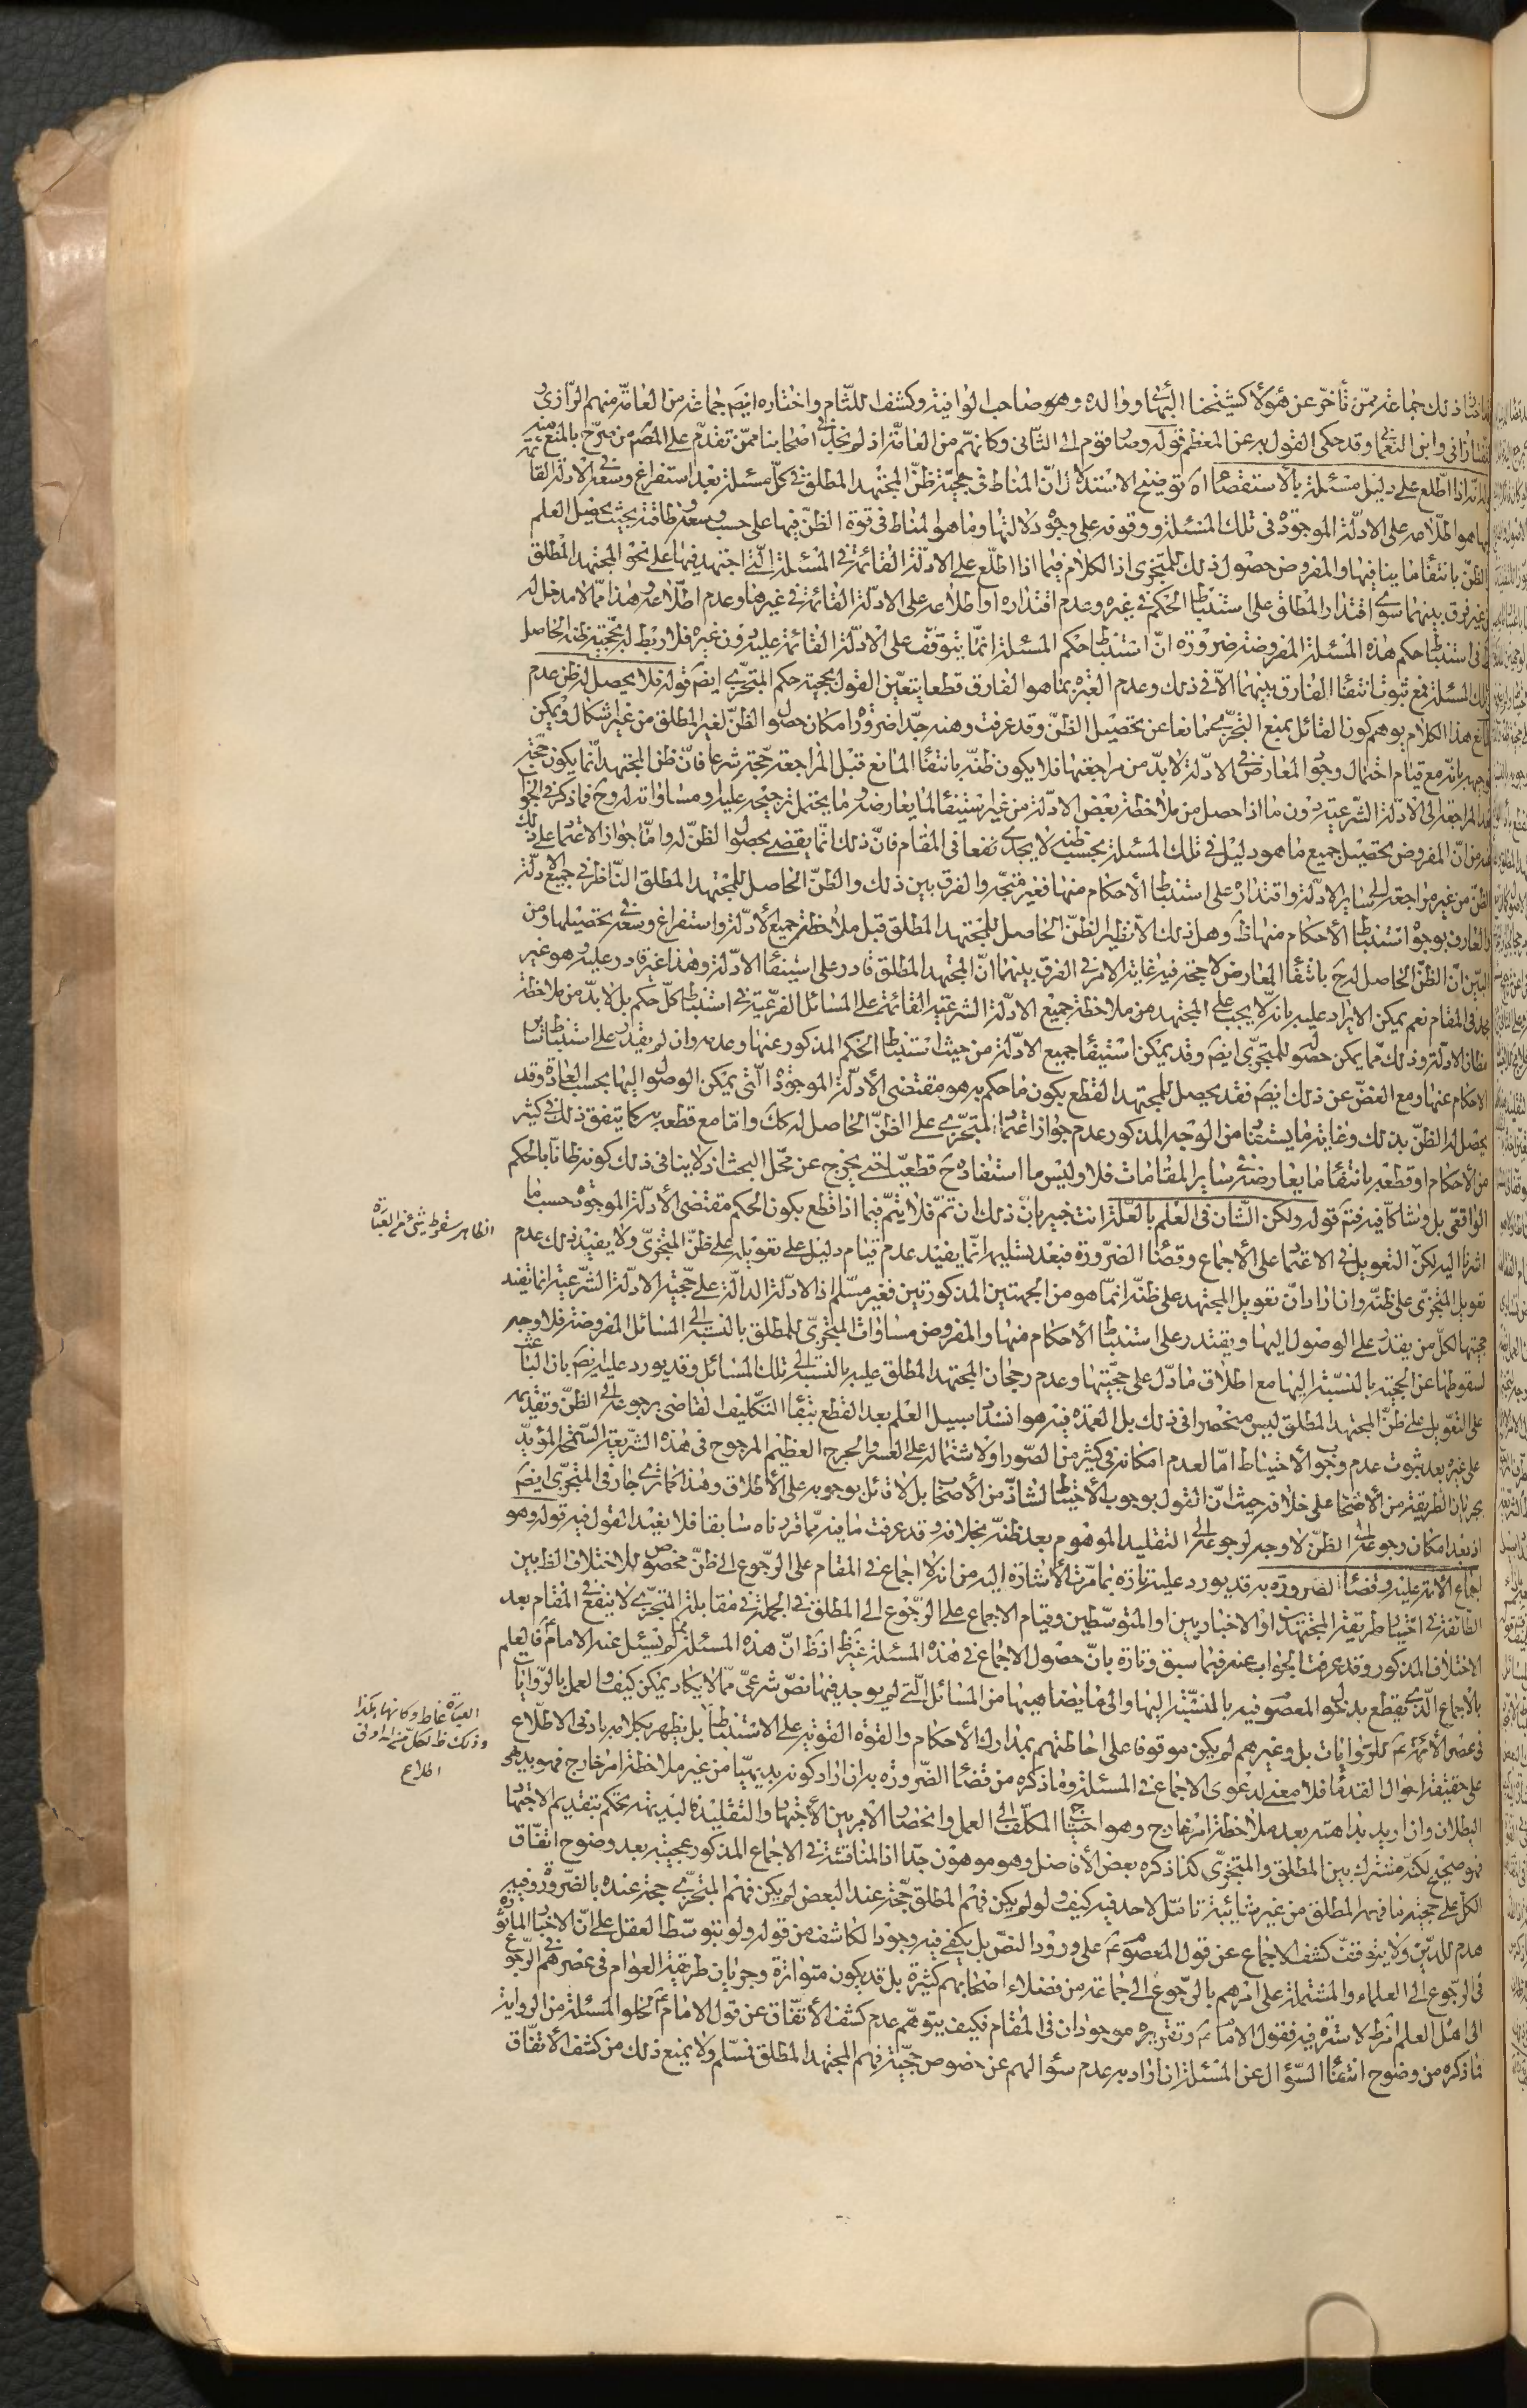 ذلك جماعة ممّن تأخّر عن هؤلاء كشيخنا البهائى ووالده وهو صاحب الوافية وكشف اللثام واختاره ايضَ جماعة من العامّة منهم الرازى و
التفتازانى وابن التفتازانى وقد حكى القول به عن المعظم قوله وصار قوم الى الثانى وكانهم من العامّة اذ لم نجد فى اصحابنا ممّن تقدّم على المصَ من صرّح بالمنع منه ثمّ
انّه اذا اطّلع على دليل مسئلة بالاستقصاء اه توضيح الاستدلال انّ المناط فى حجيّة ظنّ المجتهد المطلق فى كلّ مسئلة بعد استفراغ وسعه فى الادلّة القا
ئمة هو اطلاعه على الادلّة الموجودة فى تلك المسئلة ووقوفه على وجوه دلالتها وما هو المناط فى قوة الظنّ فيها على حسب وسعه وطاقته بحيث يحصل العلم
او الظنّ بانتفاء ما ينافيها والمفروض حصول ذلك للمتجزى اذ الكلام فيما اذا اطّلع على الادلّة القائمة فى المسئلة الّتى اجتهد فيها على نحو المجتهد المطلق
من غير فرق بينهما سوى اقتدار المطلق على استنباط الحكم فى غيره وعدم اقتداره او اطلاعه على الادلّة القائمة فى غيرها وعدم اطّلاعه وهذا ممّا لا مدخل له
فى استنباط حكم هذه المسئلة المفروضة ضرورة انّ استنباط حكم المسئلة انّما يتوقّف على الادلّة القائمة عليه دون غيره فلا ربط له بحجيّة ظنه الحاصل
فى تلك المسئلة فمع ثبوت انتفاء الفارق بينهما الّا فى ذلك وعدم العبرة بما هو الفارق قطعا يتعيّن القول بحجيّة حكم المتجزّى ايضَ قوله فلا يحصل له ظن عدم
المانع هذا الكلام يوهم كون القائل بمنع التجزّى مانعا عن تحصيل الظنّ وقد عرفت وهنه جدّا ضرورة امكان حصول الظنّ لغير المطلق من غير اشكال ويمكن
توجيهه بانّه مع قيام احتمال وجود المعارض فى الادلّة لا بدّ من مراجعتها فلا يكون ظنّه بانتفاء المانع قبل المراجعة حجّة شرعا فانّ ظن المجتهد انّما يكون حجّة
بعد المراجعة الى الادلّة الشرعيّة دون ما اذا حصل من ملاحظة بعض الادلّة من غير استيفاء لما يعارضه وما يحتمل ترجيحه عليه او مساواته له وح فما ذكر فى الجوا
ب من انّ المفروض تحصيل جميع ما هو دليل فى تلك المسئلة بحسب ظنه لا يجدى نفعا فى المقام فانّ ذلك انّما يقضى بحصول الظنّ له وامّا جواز الاعتماد على ذلك
الظنّ من غير مراجعة الى ساير الادلّة واقتداره على استنباط الاحكام منها فغير متجّه والفرق بين ذلك والظنّ الحاصل للمجتهد المطلق الناظر فى جميع الادلّة
والعارف بوجوه استنباط الاحكام منها ظَ وهل ذلك الّا نظير الظنّ الحاصل للمجتهد المطلق قبل ملاحظة جميع الادلّة واستفراغ وسعه فى تحصيلها ومن
البيّن انّ الظنّ الحاصل له ح بانتفاء المعارض لا حجة فيه غاية الامر فى الفرق بينهما انّ المجتهد المطلق قادر على استيفاء الادلّة وهذا غير قادر عليه وهو غير
مجد فى المقام نعم يمكن الايراد عليه بانّه لا يجب على المجتهد من ملاحظة جميع الادلّة الشرعيّة القائمة على المسائل الفرعيّة فى استنباط كلّ حكم بل لا بدّ من ملاحظة
مظان الادلّة وذلك ممّا يمكن حصوله للمتجزّى ايضَ وقد يمكن استيفاء جميع الادلّة من حيث استنباط الحكم المذكور عنها وعدمه وان لم يقدر على استنباط ساير
الاحكام عنها ومع الغضّ عن ذلك ايضَ فقد يحصل للمجتهد القطع بكون ما حكم به هو مقتضى الادلّة الموجودة الّتى يمكن الوصول اليها بحسب العادة وقد
يحصل له الظنّ بذلك وغاية ما يستفاد من الوجه المذكور عدم جواز اعتماد المتجزّى على الظنّ الحاصل له كك وامّا مع قطعه به كما يتفق ذلك فى كثير
من الاحكام او قطعه بانتفاء ما يعارضه فى ساير المقامات فلا وليس ما استفاده ح قطعيّا حتى يخرج عن محلّ البحث اذ لا ينافى ذلك كونه ظانّا بالحكم
الواقعى بل وشاكّا فيه فتمَ قوله ولكن الشان فى العلم بالعلّة انت خبير بانّ ذلك ان تمّ فلا يتمّ فيما اذا قطع بكون الحكم مقتضى الادلّة الموجودة حسبما
اشرنا اليه لكنّ التعويل فى الاعتماد على الاجماع وقضاء الضرورة فبعد تسليمه انّما يفيد عدم قيام دليل على تعويله على ظنّ المتجزّى ولا يفيد ذلك عدم
تعويل المتجزّى على ظنّه وان اراد انّ تعويل المجتهد على ظنّه انّما هو من الجهتين المذكورتين فغير مسلّم اذ الادلّة الدالّة على حجّية الادلّة الشرعيّة انّما تفيد
حجيتها لكلّ من يقدر على الوصول اليها ويقتدر على استنباط الاحكام منها والمفروض مساوات المتجزّى للمطلق بالنسبة الى المسائل المفروضة فلا وجه
لسقوطها عن الحجيّة بالنسبة اليها مع اطلاق ما دلّ على حجّيتها وعدم رجحان المجتهد المطلق عليه بالنسبة الى تلك المسائل وقد يورد عليه ايضَ بان الباعث
على التعويل على ظنّ المجتهد المطلق ليس منحصرا فى ذلك بل العمدة فيه هو انسداد سبيل العلم بعد القطع ببقاء التكليف القاضى برجوعه الى الظنّ وتقديمه
على غيره بعد ثبوت عدم وجوب الاحتياط امّا لعدم امكانه فى كثير من الصور او لاشتماله على العسر والحرج العظيم المرجوح فى هذه الشريعة السمحة المؤيّد
بجريان الطريقة من الاصحاب على خلافه حيث انّ القول بوجوب الاحتياط لشاذّ من الاصحاب بل لا قائل بوجوبه على الاطلاق وهذا كما ترى جار فى المتجزّى ايضَ
اذ بعد امكان رجوعه الى الظنّ لا وجه لرجوعه الى التقليد الموهوم بعد ظنّه بخلافه وقد عرفت ما فيه ممّا قررناه سابقا فلا نعيد القول فيه قوله وهو
اجماع الامة عليه وقضاء الضرورة به قد يورد عليه تارة بما مرّت الاشارة اليه من انه لا اجماع فى المقام على الرجوع الى ظنّ مخصوص للاختلاف الظ بين
الطائفة فى اختيار طريقة المجتهدين او الاخباريين او المتوسّطين وقيام الاجماع على الرجوع الى المطلق فى الجملة فى مقابلة المتجزّى لا ينفع فى المقام بعد
الاختلاف المذكور وقد عرفت الجواب عنه فيما سبق وتارة بانّ حصول الاجماع فى هذه المسئلة غير ظ اذ ظ انّ هذه المسئلة لم يسئل عنه الامام عَ فالعلم
بالاجماع الّذى يقطع بدخول المعصوم فيه بالنسبة اليها والى ما يضاهيها من المسائل الّتى لم يوجد فيها نصّ شرعىّ ممّا لا يكاد يمكن كيف والعمل بالروايات
فى عصر الائمة عَ للرواة بل وغيرهم لم يكن موقوفا على احاطتهم بمدارك الاحكام والقوّة القويّة على الاستنباط بل يظهر بكلامه بادنى الاطّلاع
على حقيقة احوال القدماء فلا معنى لدعوى الاجماع فى المسئلة وما ذكره من قضاء الضرورة به ان اراد كونه بديهيّا من غير ملاحظة امر خارج فهو بديهى
البطلان وان اريد بداهته بعد ملاحظة امر خارج وهو احتياج المكلّف الى العمل وانحصار الامر بين الاجتهاد والتقليد فالبديهة تحكم بتقديم الاجتهاد
فهو صحيح لكنّه مشترك بين المطلق والمتجزّى كذا ذكره بعض الافاضل وهو موهون جدّا اذ المناقشة فى الاجماع المذكور عجيبة بعد وضوح اتفّاق
الكلّ على حجيّة ما فهمه المطلق من غير شائبة تامّل لاحد فيه كيف ولو لم يكن فهم المطلق حجّة عند البعض لم يكن فهم المتجزّى حجة عنده بالضرورة وفيه
هدم للدّين ولا يتوقفّ كشف الاجماع عن قول المعصوم عَ على ورود النصّ بل يكفى فيه وجود الكاشف من قوله ولو بتوسّط العقل على انّ الاخبار الماثورة
فى الرجوع الى العلماء والمشتملة على امرهم بالرجوع الى جماعة من فضلاء اصحابهم كثيرة بل قد يكون متواترة وجريان طريقة العوام فى عصرهم فى الرجوع
الى اهل العلم امر ظ لا سترة فيه فقول الامام عَ وتقريره موجودان فى المقام فكيف يتوهّم عدم كشف الاتفّاق عن قول الامام عَ لخلو المسئلة من الرواية
فما ذكره من وضوح انتفاء السؤال عن المسئلة ان اراد به عدم سؤالهم عن خصوص حجّية فهم المجتهد المطلق فمسلّم ولا يمنع ذلك من كشف الاتفّاق
الظاهر سقوط شئ فى العبارة
العبارة غلط وكانها هكذا
وذلك ظ لكل من له ادنى
اطلاع